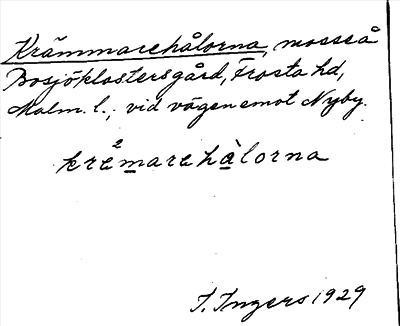 Krämmarehålorna, mosse å
Bosjöklostersgård, Frosta hd,
Malm. l., vid vägen emot Nyby.
kre²marehàlorna
I. Ingers 1929